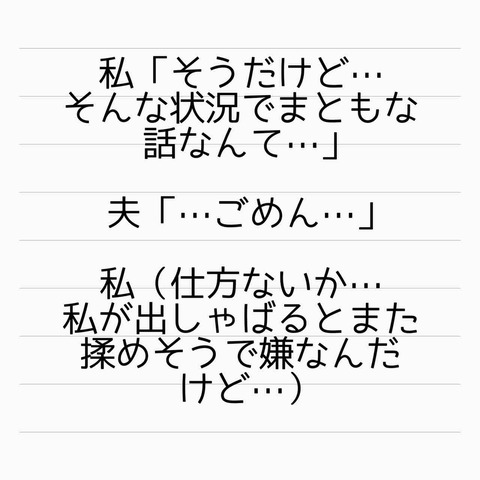 私「そうだけど…
そんな状況でまともな
話なんて…」
夫「…ごめん…」
私（仕方ないか…
私が出しゃばるとまた
揉めそうで嫌なんだ
けど…）